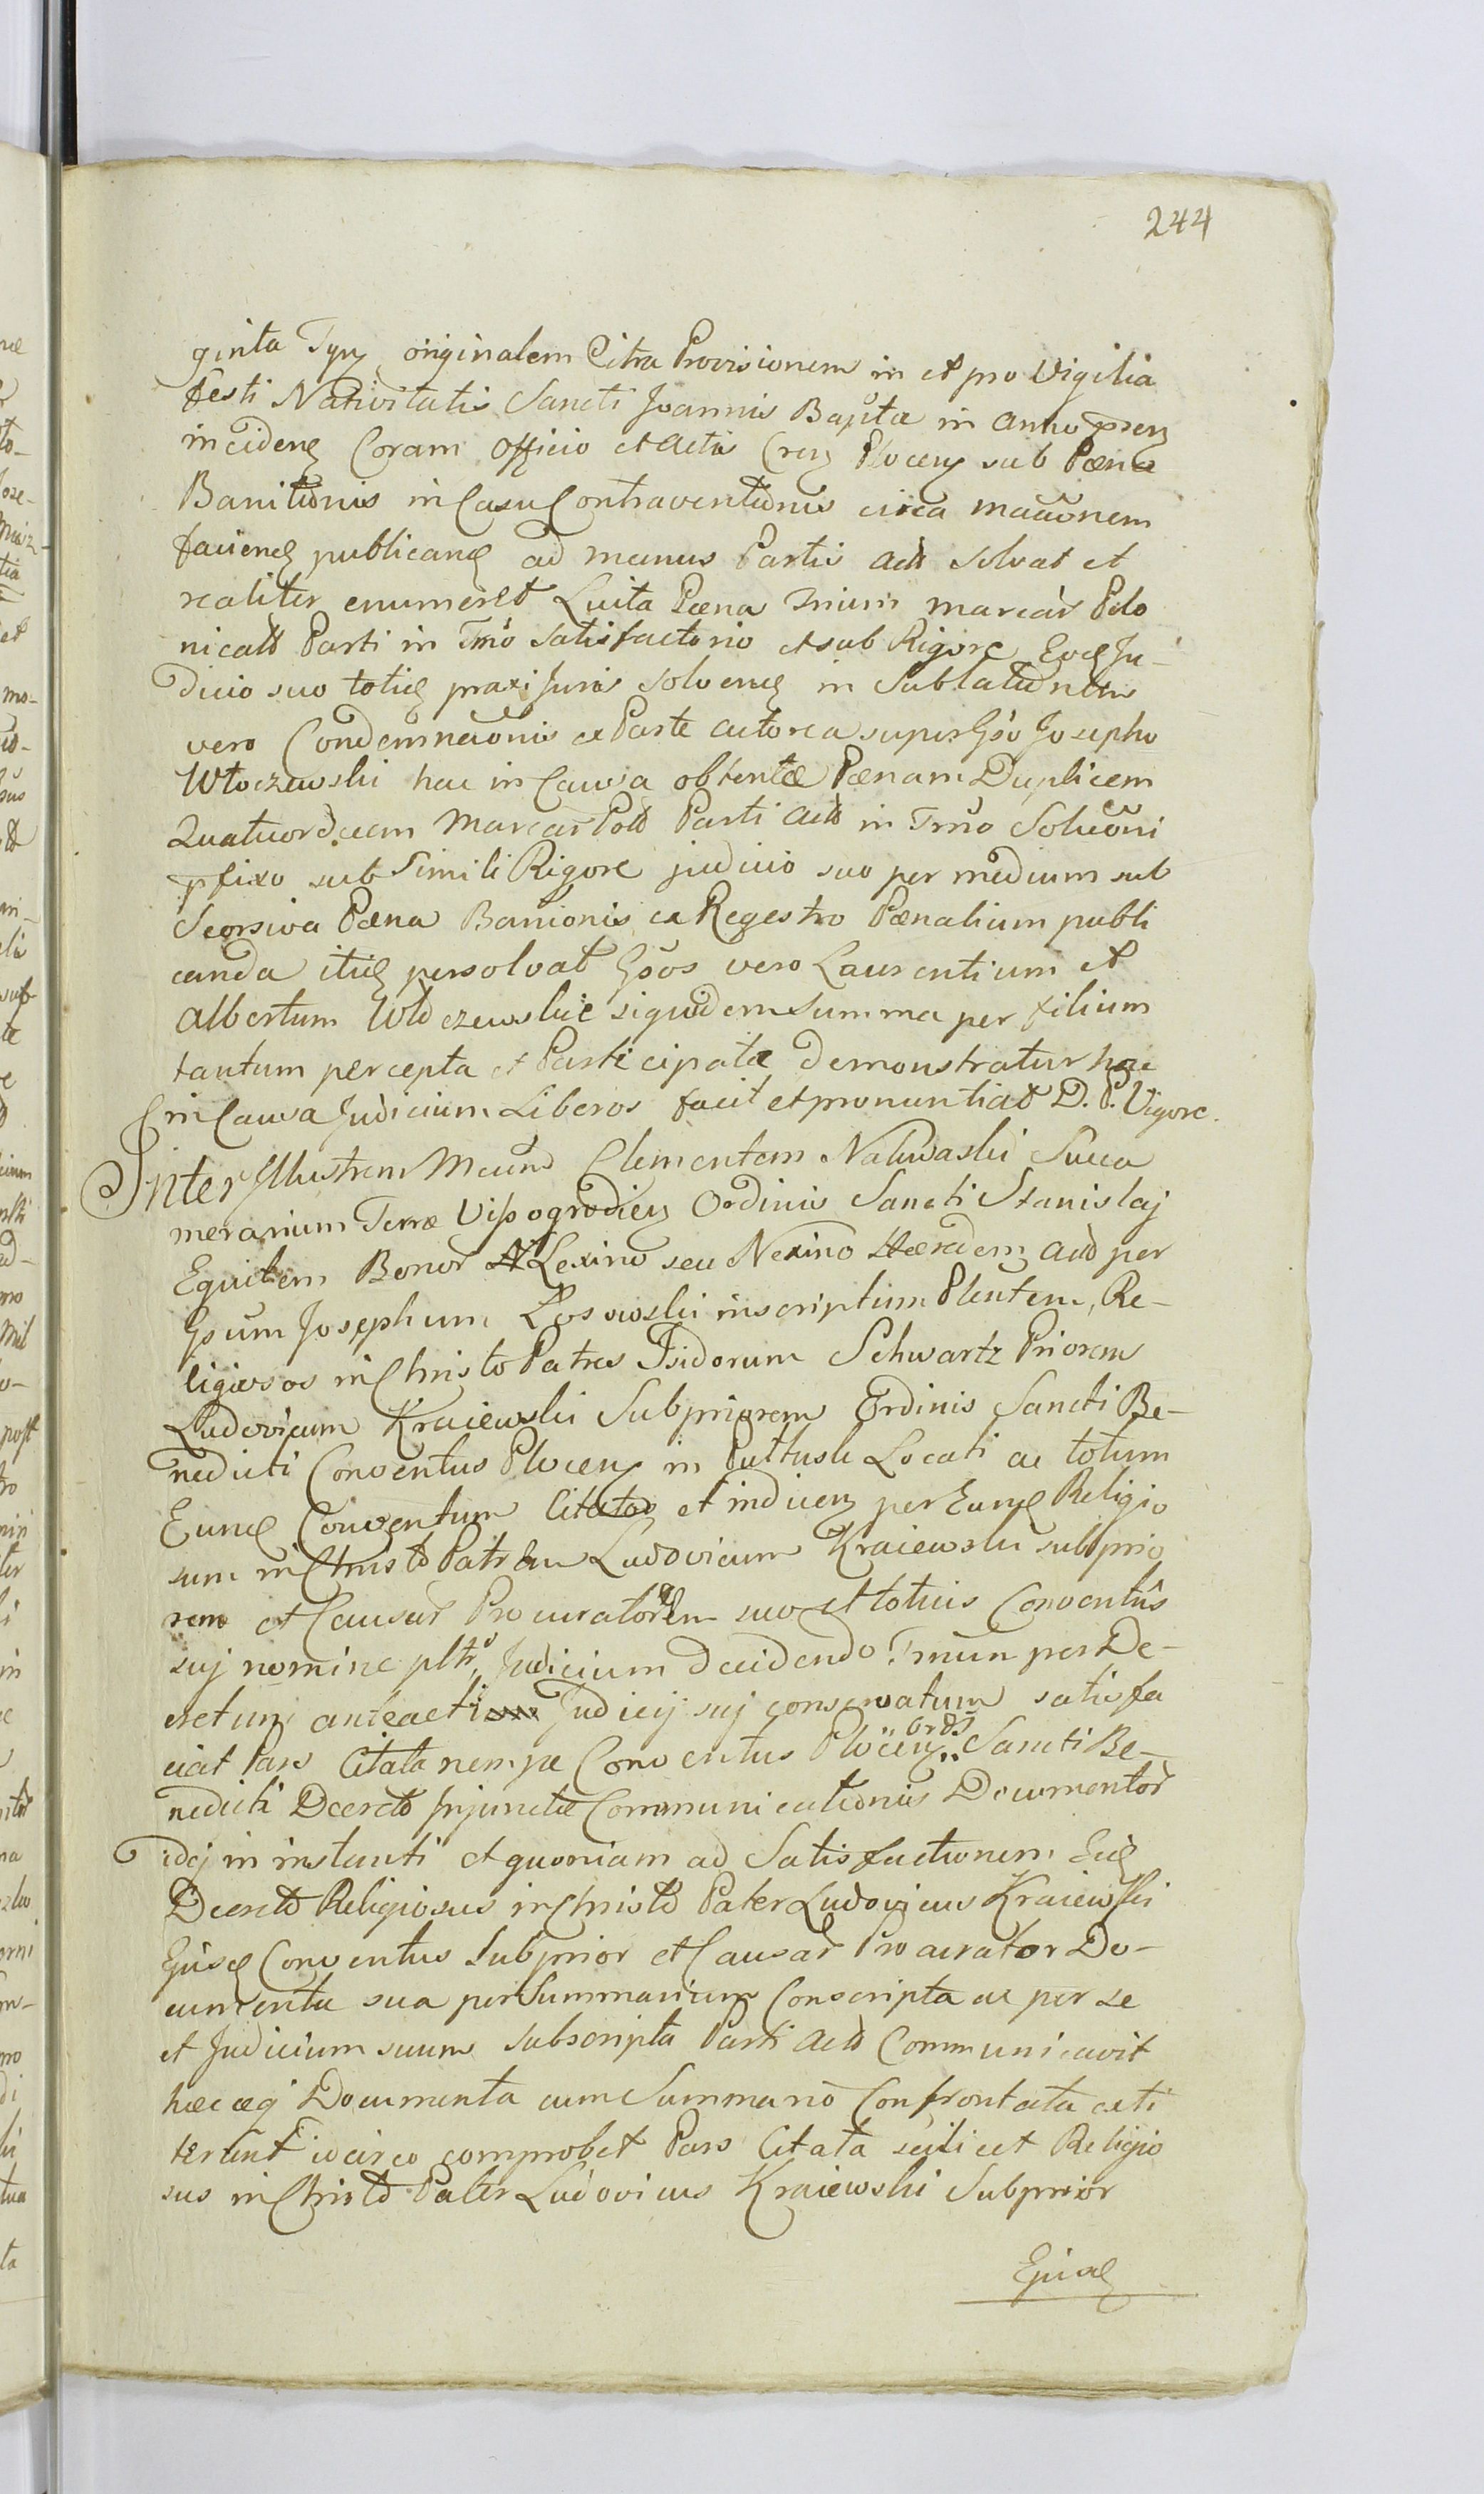 244
ginta Tyn originalem Citra Provisionem in et pro Vigilia
festi Nativitatis Sancti Joannis Bapta in Anno prñ
inciden Coram Officio et Actis Cren Plocen sub Pæna
Banitionis in Casu Contraventionis circa macionem
facien publican ad manus Partis Act solvat et
realiter enumeret Luita Pæna trium marcar Polo
nical Parti in Tmo satisfactorio et sub Rigore Ju-
dicio suo toties praxi Juris solven in Sublationem
vero Condemnaonis ex Parte Actorea super Gso Josepho
Włoczewski hac in Causa obtentæ Pænam Duplicem
Quatuordecem Marcar Pol Parti Act in Tmo Soluoni
pfixo sub Simili Rigore judicio suo per medium sub
Seorsiva Pæna Banionis ex Regestro Pænalium publi
canda persolvat Gsos vero Laurentium et
Albertum Włoczewskie siquidem summa per filium
tantum percepta et Participata demonstratur hac
in Causa Judicium Liberos facit et pronuntiat D. P. Vigore.
Inter Illustrem Mcum Clementem Nakwaski Succa
merarium Terræ Vissogrodien Ordinis Sancti Stanislaj
Equitem Bonor Lexino seu Nexino Hæredem Act per
Gsum Josephum inscriptum Plentem, Re-
ligiosos in Christo Patres Isidorum Schwartz Priorem
Ludovicum Kraiewski Subpriorem Ordinis Sancti Be-
nedicti Conventus Plocen in Pułtusk Locati ac totum
Eund Conventum Citatos et indicen per Eund Religio
sum in Christo Patrem Ludovicum Kraiewski subprio
rem et Causar Procuratorem suo et totius Conventûs
suj nomine pltr, Judicium decidendo Tmum per De-
cretum anteacti Judicij suj conservatum satisfa
ciat Pars Citata nempe Conventus Plocen Ordis Sancti Be-
nedicti Decreto Injunctæ Communicationis Documentor
idej in instanti et quoniam ad Satisfactionem
Decreto Religiosus in Christo Pater Ludovicus Kraiewski
Ejusd Conventus Subprior et Causar Procurator Do-
cumenta sua per Summarium Conscripta ac per se
et Judicium suum subscripta Parti Act Communicavit
hæcæq Documenta cum Summario Confrontata exti
terunt idcirco comprobet Pars Citata scilicet Religio
sus in Christo Pater Ludovicus Kraiewski Subprior
Ejusd